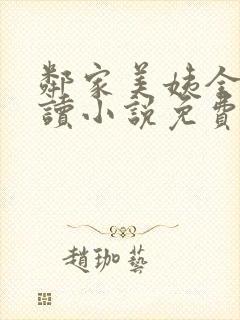 鄰家美姨全
讀小說免費
趙珈藝